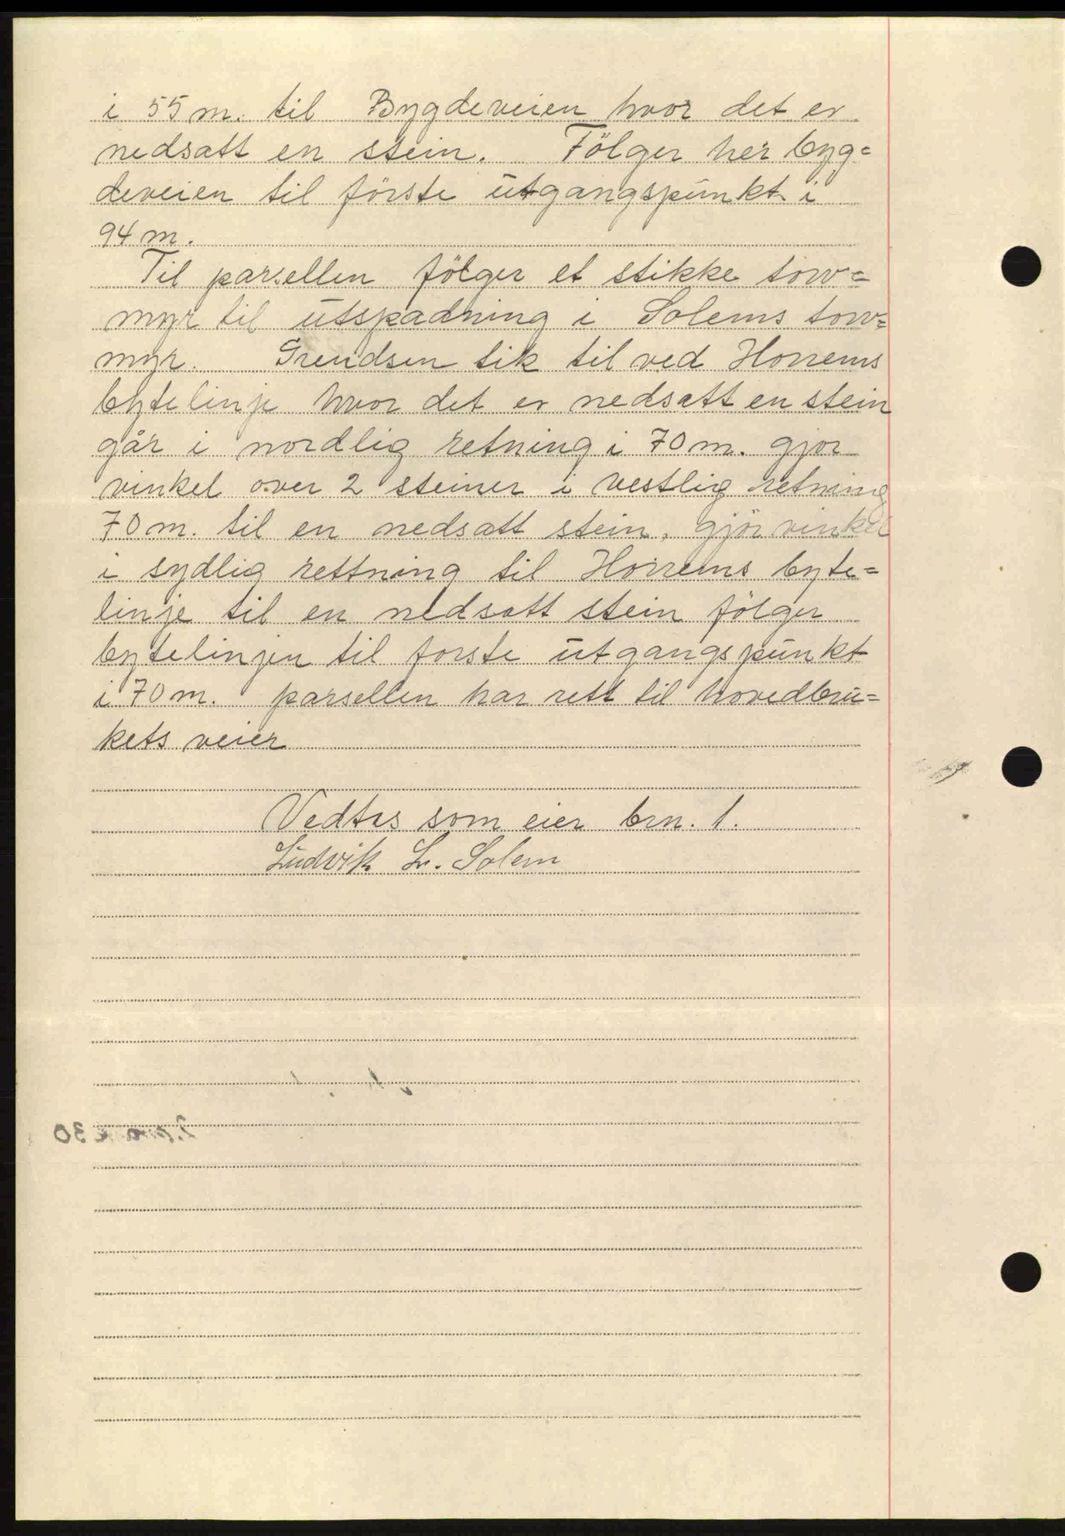 i 55 m. til Bygdeveien hvor det er
nedsatt en stein. Fölger her byg=
deveien til förste utgangspunkt i
94 m.
Til parsellen fölger et stikke torv=
myr til utspadning i Solems torv=
myr. Grendsen tik til ved Horrems
bytelinje hvor det er nedsatt en stein
går i nordlig retning i 70 m. gjor
vinkel over 2 steiner i vestlig retning
70 m. til en nedsatt stein, gjör vinkel
i sydlig rettning til Horrems byte=
linje til en nedsatt stein fölger
bytelinjen til forste utgangspunkt
i 70 m. parsellen har rett til hovedbru=
kets veier
Vedtas som eier brn. 1.
Ludvik L. Solem